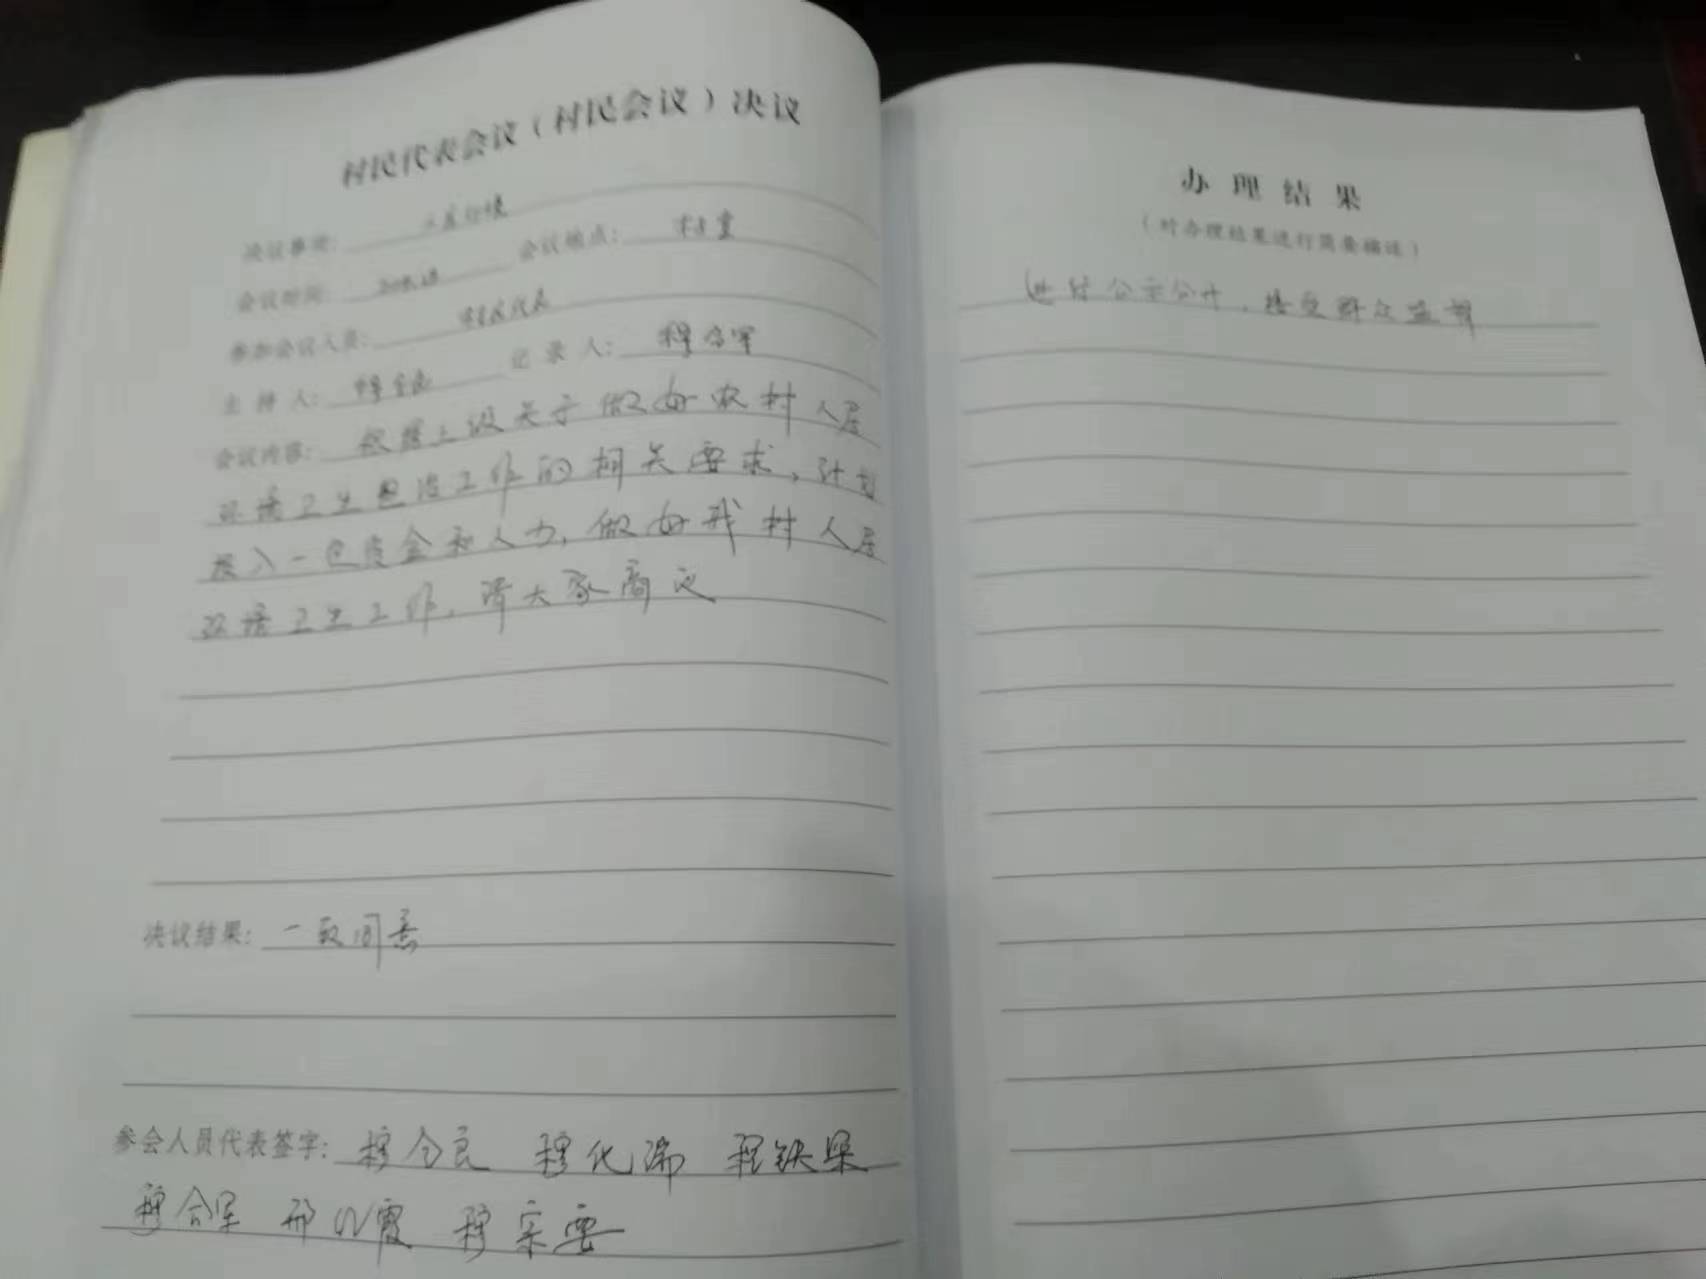 村民代表会议（村民会议）决议
决议事项：人居环境
会议时间： 会议地点：村室
参加会议人员：村民代表
主持人： 记录人：穆合军
会议内容：根据上级关于做好农村人居
环境卫生整治工作的相关要求，计划
投入一定资金和人力，做好我村人居
环境卫生工作，请大家商议
决议结果：一致同意
参会人员代表签字：穆
穆合军 穆宗要
办理结果
（对办理结果进行简要描述）
进行公示公开，接受群众监督